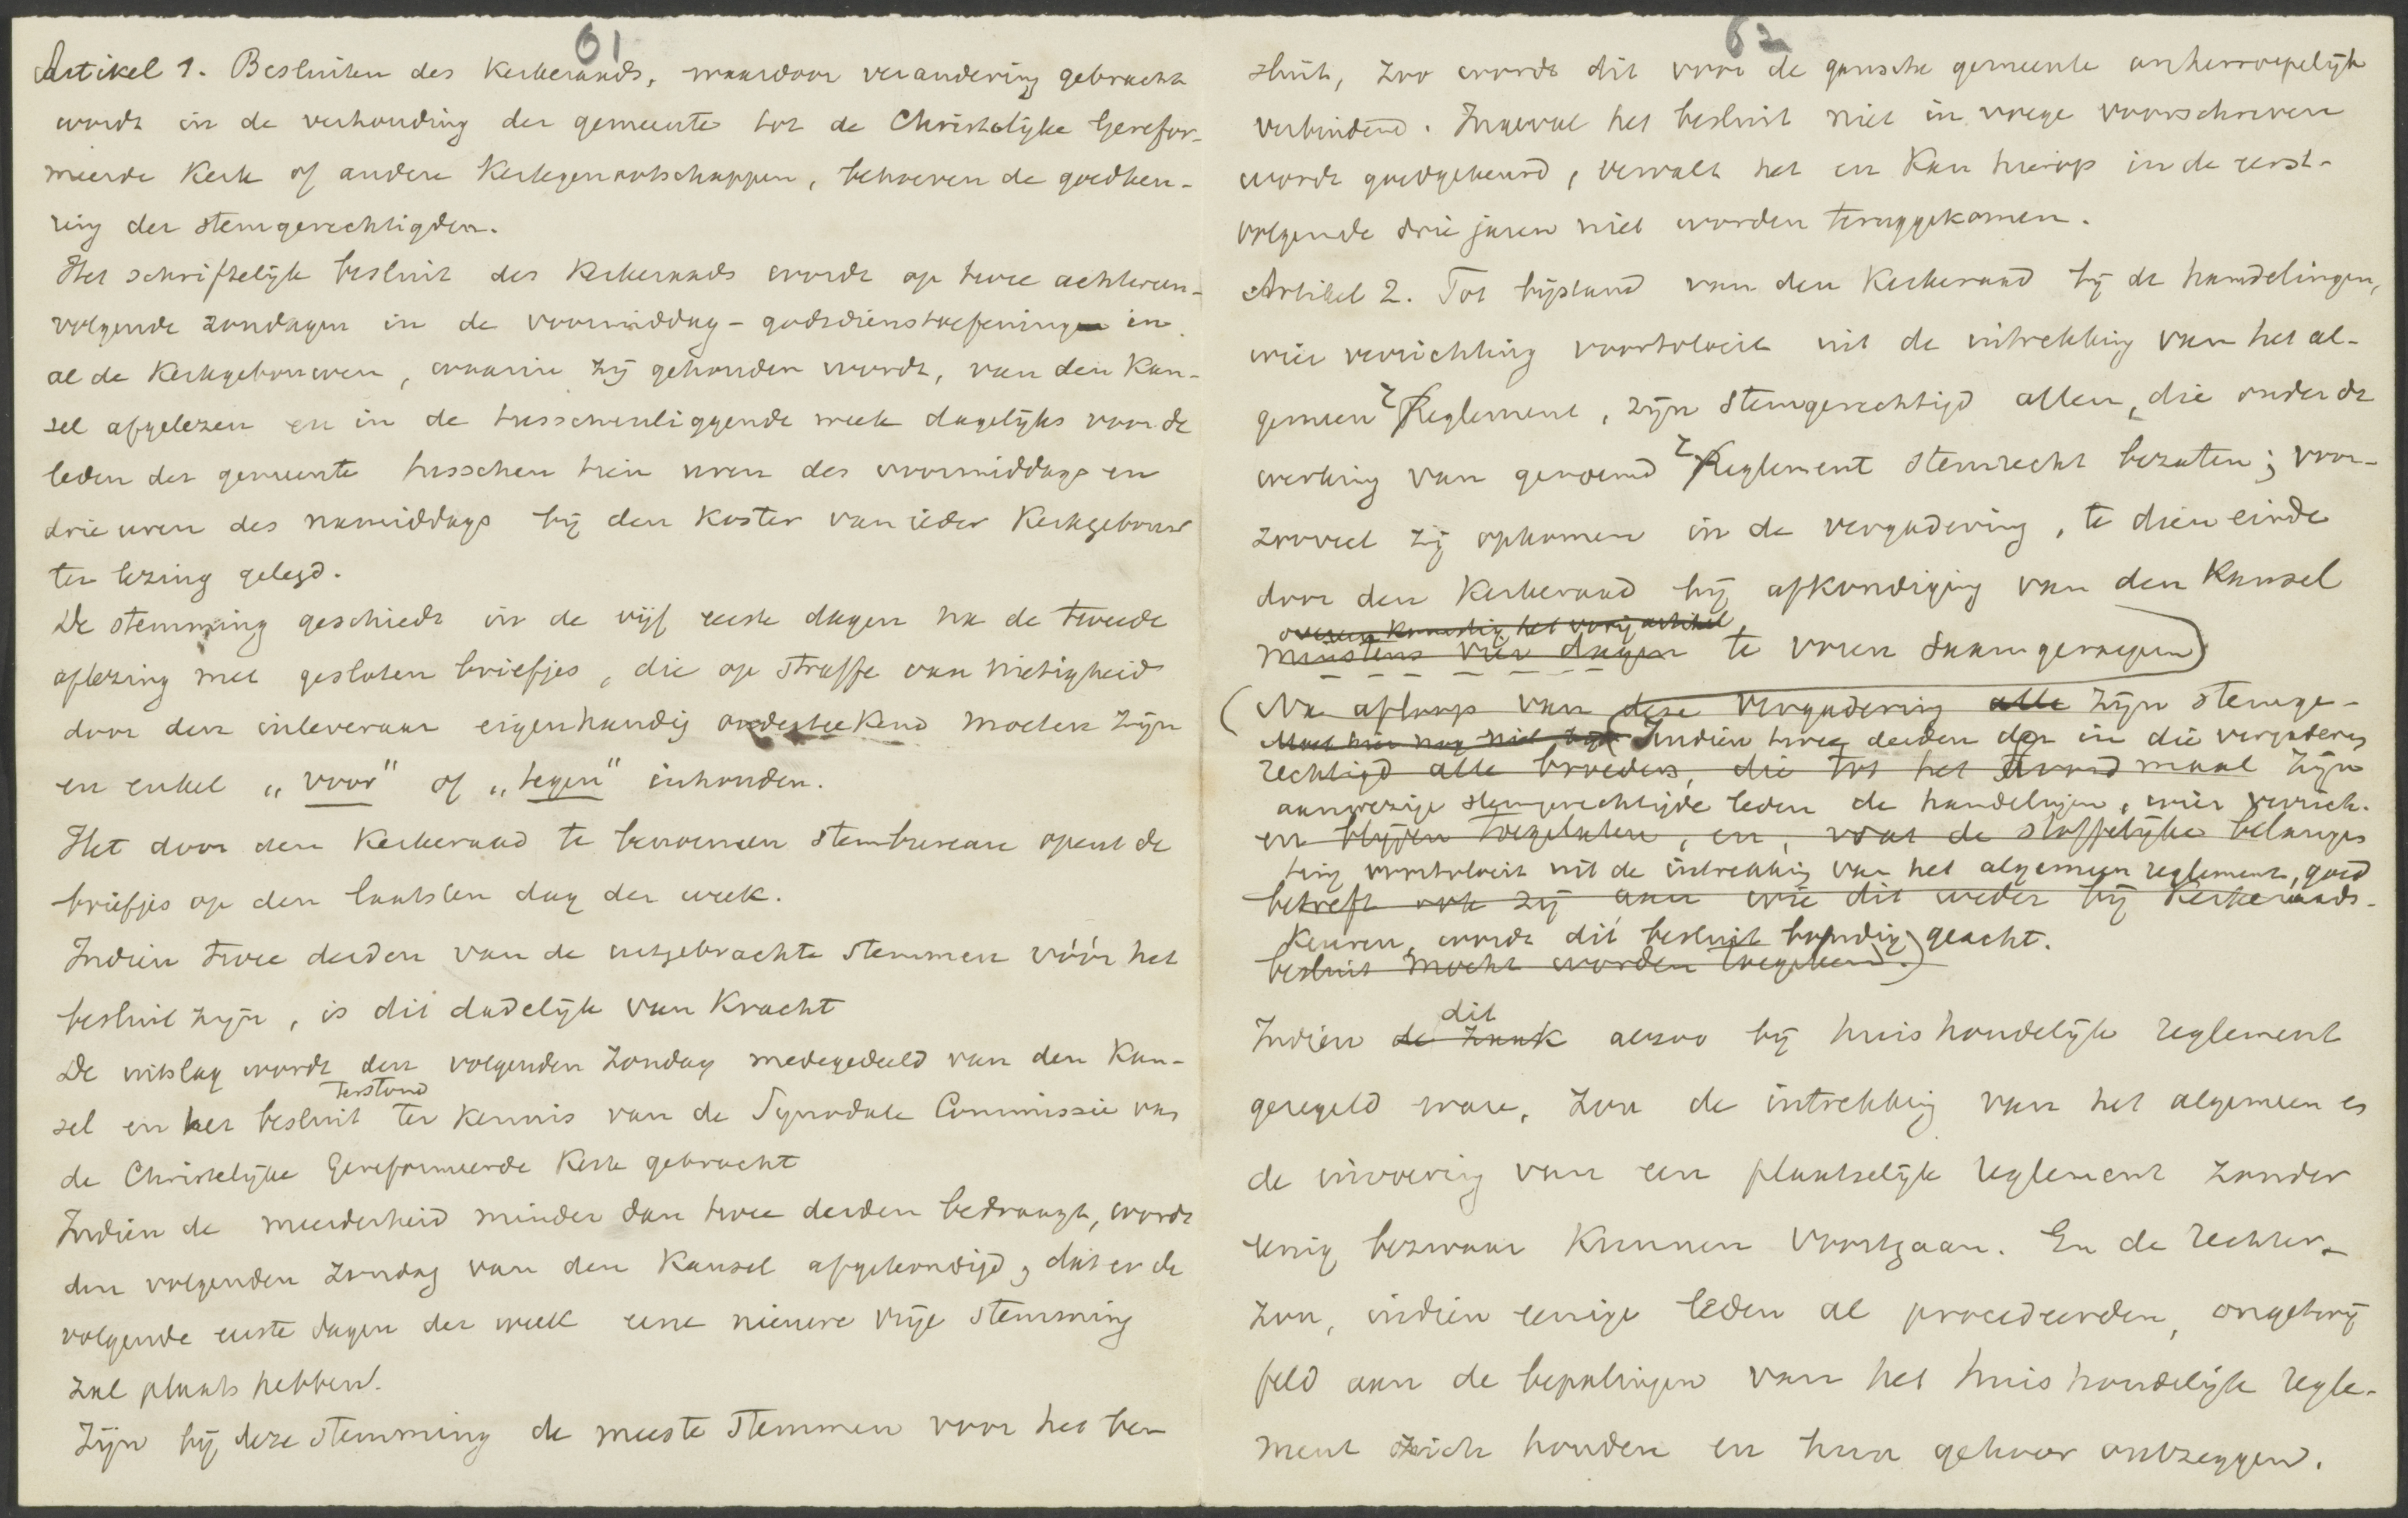 61
Artikel 1. Besluiten des Kerkeraads, waardoor verandering gebracht
wordt in de verhouding der gemeente tot de Christelijke Gerefor-
meerde Kerk of andere Kerkgenootschappen, behoeven de goedkeu-
ring der stemgerechtigden.
Het schriftelijk besluit des Kerkeraads wordt op twee achtereen-
volgende zondagen in de voormiddag-godsdienstoefeningen in
al de Kerkgebouwen, waarin zij gehouden wordt, van den Kan-
sel afgelezen en in de tusschenliggende week dagelijks voor de
leden der gemeente tusschen tien uren des voormiddags en
drie uren des namiddags bij den Koster van ieder Kerkgebouw
ter lezing gelegd.
De stemming geschiedt in de vijf eerste dagen na de tweede
aflezing met gesloten briefjes, die op straffe van nietigheid
door den inleveraar eigenhandig onderteekend moeten zijn
en enkel „voor" of „tegen" inhouden.
Het door den Kerkeraad te benoemen stembureau opent de
briefjes op den laatsten dag der week.
Indien twee derden van de uitgebrachte stemmen vóór het
besluit zijn, is dit dadelijk van Kracht
De uitslag wordt den volgenden Zondag medegedeeld van den Kan-
terstond
sel en het besluit ter kennis van de Synodale Commissie van
de Christelijke Gereformeerde Kerk gebracht
Indien de meerderheid minder dan twee derden bedraagt, wordt
den volgenden Zondag van den Kansel afgekondigd, dat er de
volgende eerste dagen der week eene nieuwe vrije stemming
zal plaats hebben.
Zijn bij deze stemming de meeste stemmen voor het be-
62
sluit, zoo wordt dit voor de gansche gemeente onherroepelijk
verbindend. Ingeval het besluit niet in voege voorschreven
wordt goedgekeurd, vervalt het en kan hierop in de eerst-
volgende drie jaren niet worden teruggekomen.
Artikel 2. Tot bijstand van den Kerkeraad bij de handelingen,
wier verrichting voortvloeit uit de intrekking van het al-
gemeen reglement, zijn stemgerechtigd allen, die onder de
werking van genoemd reglement stemrecht bezaten; voor-
zooveel zij opkomen in de vergadering, te dien einde
door den Kerkeraad bij afkondiging van den Kansel
overeenkomstig het vorig artikel
minstens vier dagen te voren saamgeroepen
(Na afloop van deze vergadering alle zijn stemge-
Moet hier nog niet bij (Indien twee derden der in die vergadering
rechtigd alle broeders, die tot het avondmaal zijn
aanwezige stemgerechtigde leden de handelingen, wier verrich-
en blijven toegelaten, en, wat de stoffelijke belangen
ting voortvloeit uit de intrekking van het algemeen reglement, goed
betreft ook zij aan wie dit weder bij Kerkeraads-
keuren, wordt dit besluit bondig geacht.
besluit mocht worden toegekend.)
dit
Indien de zaak alzoo bij huishoudelijk reglement
geregeld ware, zou de intrekking van het algemeen en
de invoering van een plaatselijk reglement zonder
eenig bezwaar kunnen voortgaan. En de rechter
zou, indien eenige leden al procedeerden, ongetwij
feld aan de bepalingen van het huishoudelijk regle-
ment zich houden en hun gehoor ontzeggen.